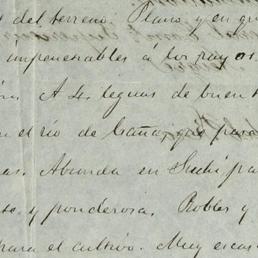 del terreno. Plano y en gr
impenetrables á los rayos
A 4 leguas de buen
el rio de Caña, que para
as. Abunda en
te y ponderosa. Robles y
para el cultivo. Muy escas